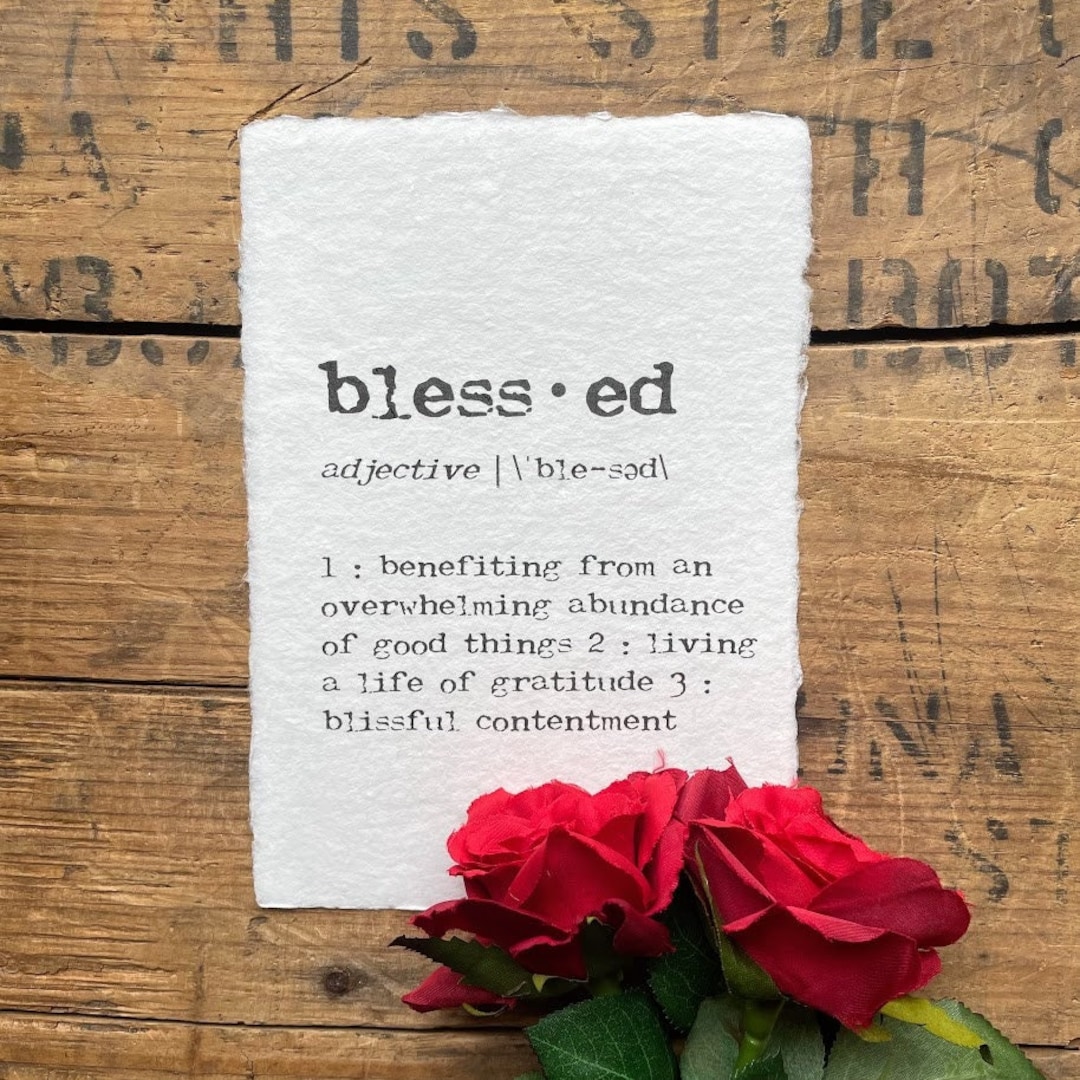 THIS SIDE
bless·ed
adjective | \ˈble-səd\
1 : benefiting from an
overwhelming abundance
of good things 2 : living
a life of gratitude 3 :
blissful contentment